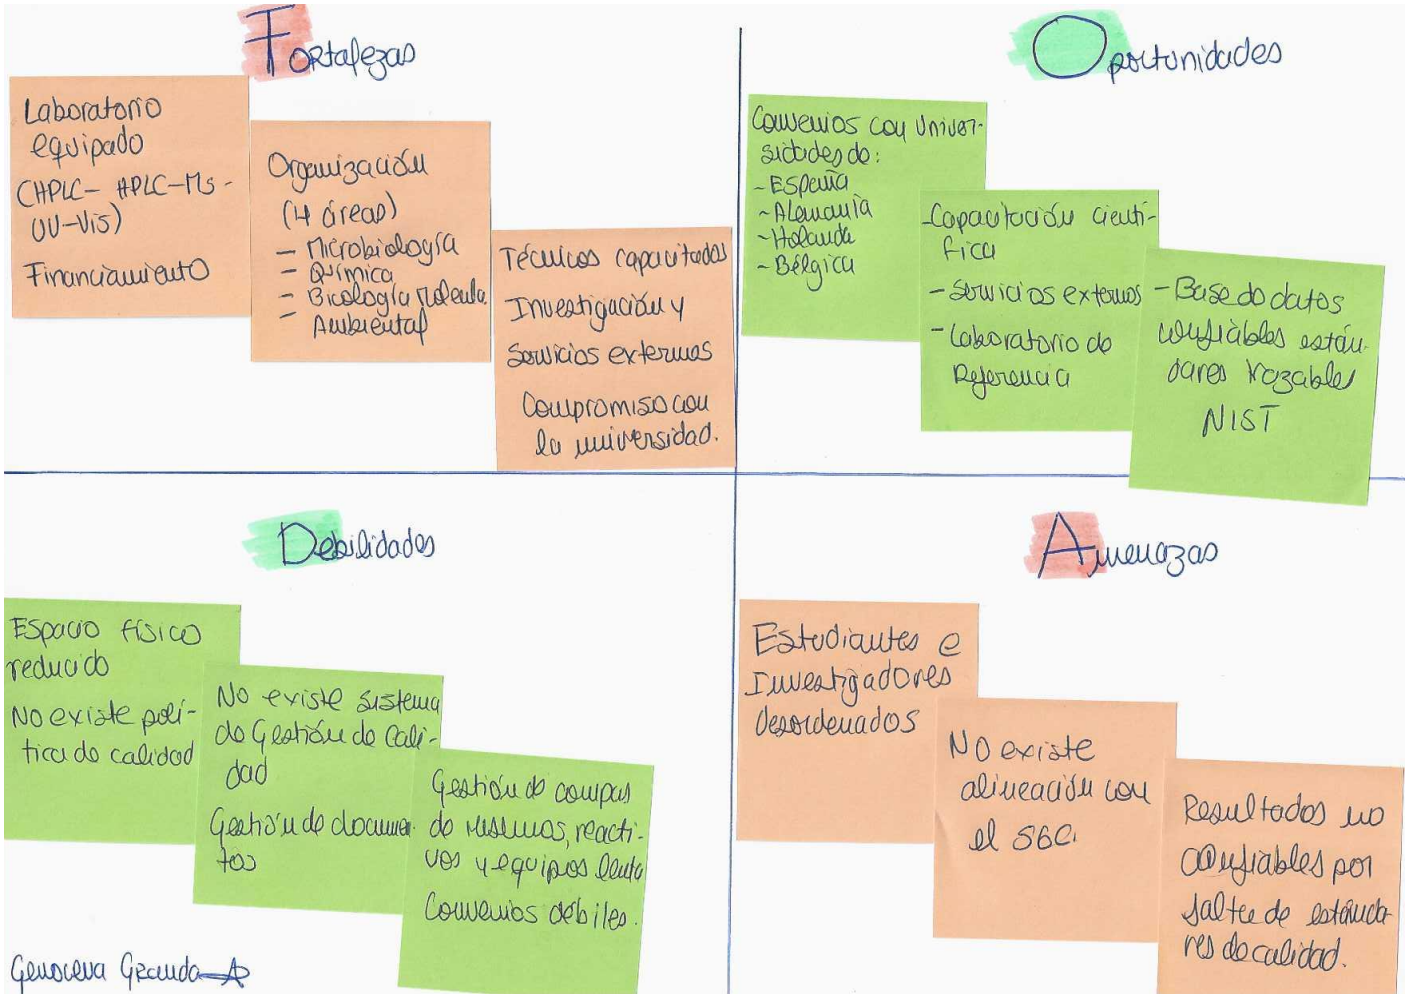 Fortalezas
Laboratorio
equipado
(HPLC- HPLC-Ms-
UV-Vis)
Financiamiento
Organización
(4 áreas)
- Microbiología
- Química
- Biología Molecular
- Ambiental
Técnicos capacitados
Investigación y
Servicios externos
Compromiso con
la universidad.
Oportunidades
Convenios con Univer-
sidades de:
- España
- Alemania
- Holanda
- Bélgica
- Capacitación cientí-
fica
- Servicios externos
- Laboratorio de
Referencia
- Base de datos
confiables están-
dares trazables
NIST
Debilidades
Espacio físico
reducido
No existe polí-
tica de calidad
No existe sistema
de Gestión de cali-
dad
Gestión de documen-
tos
Gestión de compras
de insumos, reacti-
vos y equipos lenta
Convenios débiles.
Genoveva Granda A
Amenazas
Estudiantes e
Investigadores
desordenados
No existe
alineación con
el SGC.
Resultados no
confiables por
falta de estánda-
res de calidad.